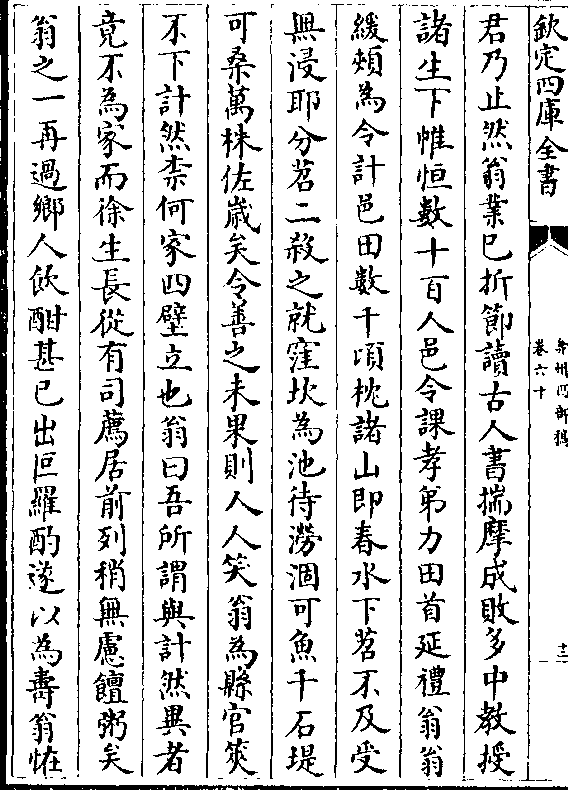 欽定四庫全書
弇州四部稿
卷六十
十二
君乃止然翁業已折節讀古人書揣摩成敗多中教授
諸生下帷恒數十百人邑令課孝弟力田首延禮翁翁
緩頰為令計邑田數千頃枕諸山即春水下苕不及受
無浸耶分苕二殺之就窪坎為池待澇涸可魚千石堤
可桑萬株佐歲矣令善之未果則人人笑翁為縣官筴
不下計然柰何家四壁立也翁曰吾所謂與計然異者
竟不為家而徐生長從有司薦居前列稍無慮饘粥矣
翁之一再過鄉人飲酣甚已出叵羅酌遂以為壽翁恠